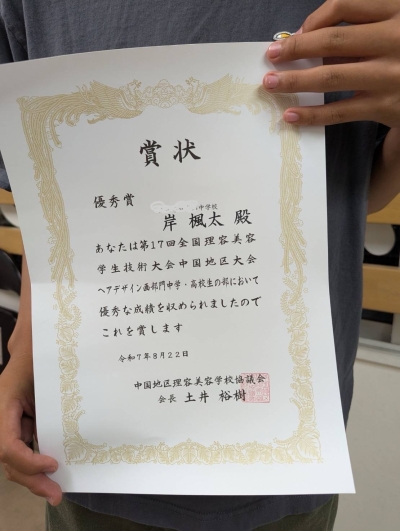 賞状
優秀賞
中学校
岸 楓太 殿
あなたは第17回全国理容美容
学生技術大会中国地区大会
ヘアデザイン画部門中学・高校生の部において
優秀な成績を収められましたので
これを賞します
令和7年8月22日
中国地区理容美容学校協議会
会長 土井 裕樹